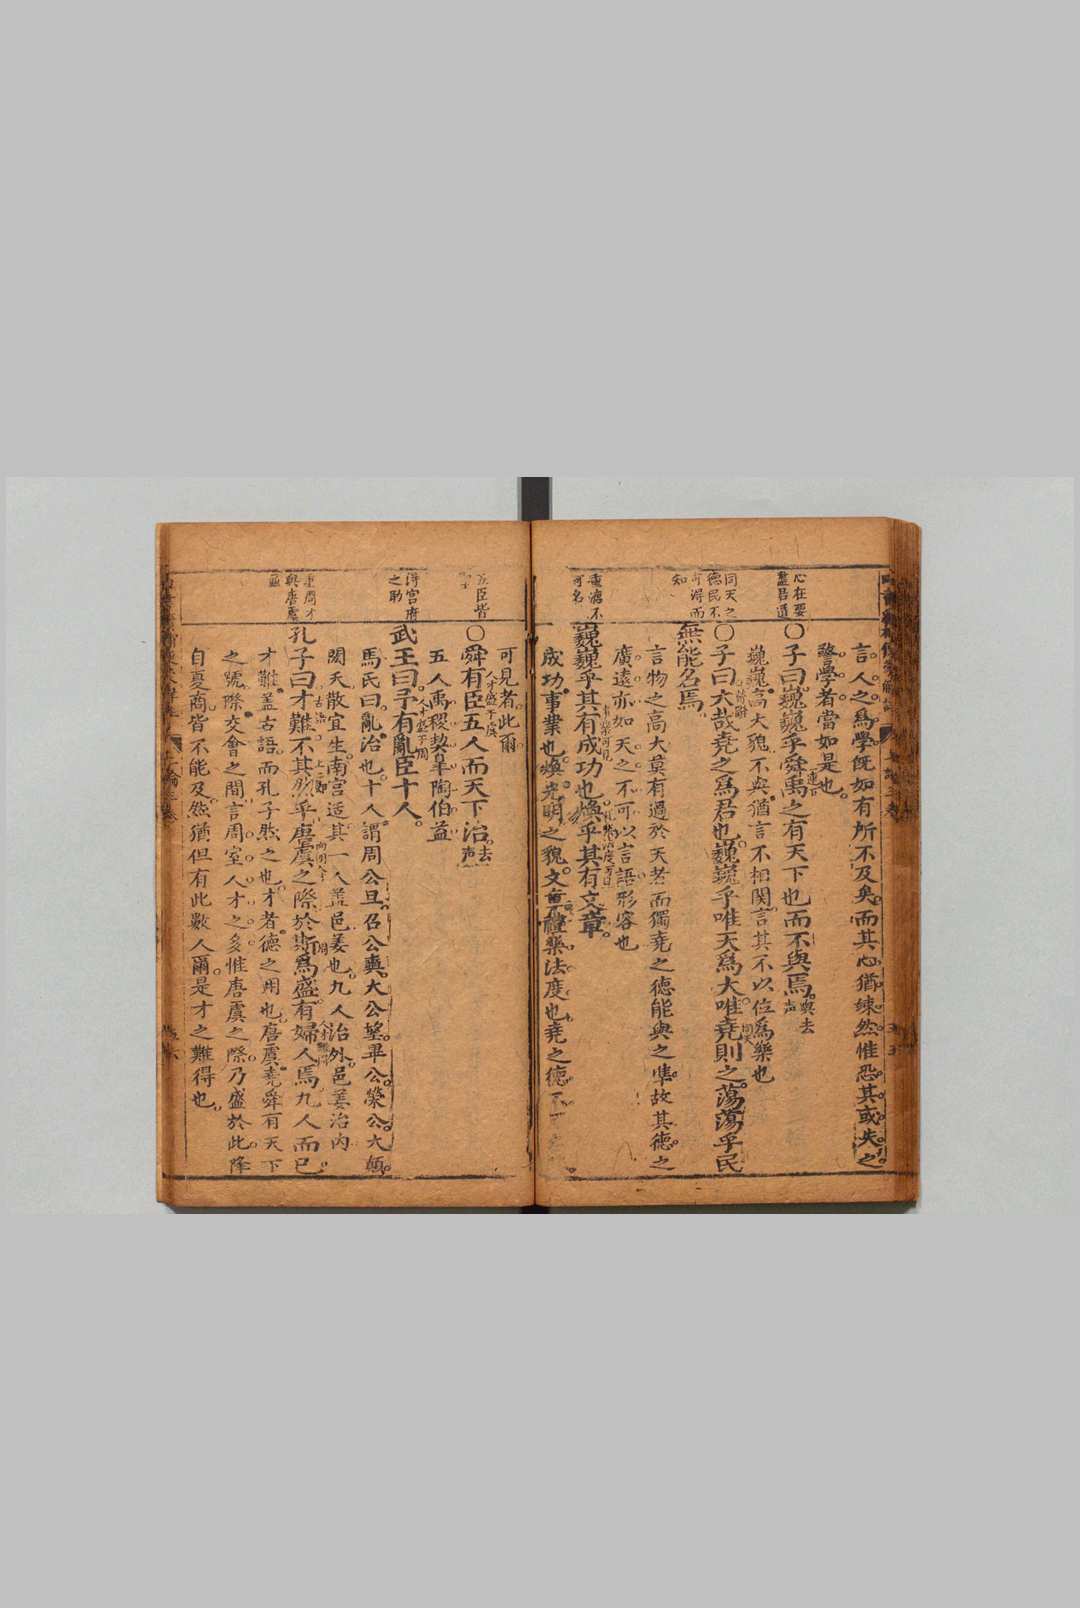 言人之爲學旣如有所不及矣而其心猶竦然惟恐其或失之
警學者當如是也
心在憂
〇子曰巍巍乎舜禹之有天下也而不與焉
與去
声
巍巍高大貌不與猶言不相関言其不以位爲樂也
同天之
德民不
可得而
知
〇子曰大哉堯之爲君也巍巍乎唯天爲大唯堯則之蕩蕩乎民
無能名焉
言物之高大莫有過於天者而獨堯之德能與之準故其德之
廣遠亦如天之不可以言語形容也
可名
巍巍乎其有成功也煥乎其有文章
成功事業也煥光明之貌文章禮樂法度也堯之德不可
可見者此爾
五臣皆
〇舜有臣五人而天下治
去
声
人才盛于虞
五人禹稷契皐陶伯益
得宮府
之助
武王曰予有亂臣十人
人才盛于周
馬氏曰亂治也十人謂周公旦召公奭大公望畢公榮公大顚
閎夭散宜生南宮适其一人盖邑姜也九人治外邑姜治内
重周才
與唐虞
並
孔子曰才難不其然乎唐虞之際於斯爲盛有婦人焉九人而已
才難盖古語而孔子然之也才者德之用也唐虞堯舜有天下
之號際交會之間言周室人才之多惟唐虞之際乃盛於此降
自夏商皆不能及然猶但有此數人爾是才之難得也